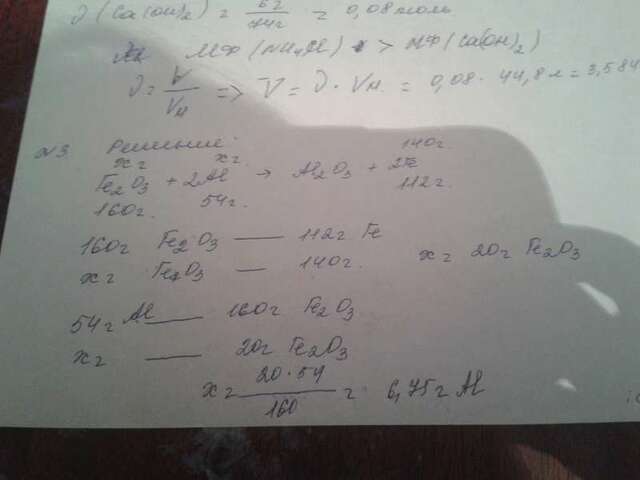 ν(Ca(OH)₂) = 6г/74г = 0,08 моль
МФ(NH₄Cl) > МФ(Ca(OH)₂)
ν = V/Vм => V = ν · Vм = 0,08 · 44,8л = 3,584
№3. Решение:
xг xг 140г.
Fe₂O₃ + 2Al → Al₂O₃ + 2Fe
160г. 54г. 112г.
160г Fe₂O₃ — 112г Fe
xг Fe₂O₃ — 140г. xг 20г Fe₂O₃
54г Al — 160г Fe₂O₃
xг — 20г Fe₂O₃
x = 20·54/160 = 6,75г Al